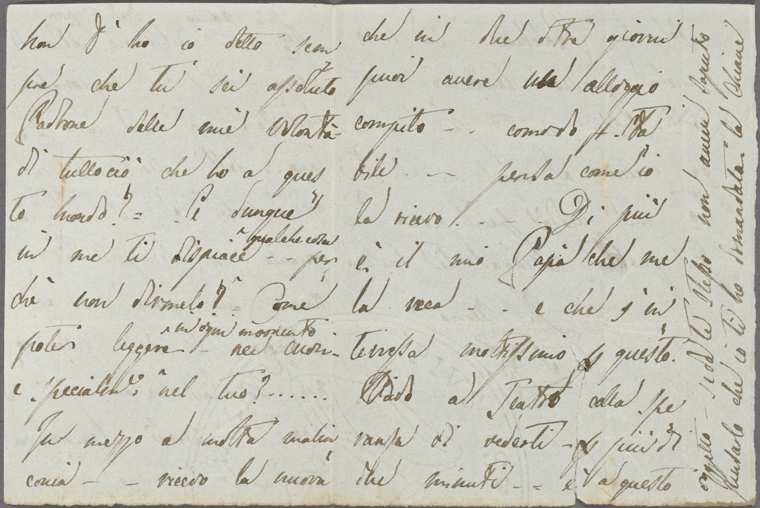 Non t'ho io detto sem
pre che tu sei assoluto
Padrone delle mie volontà
di tuttociò che ho a ques
to mondo? = Se dunque
in me ti dispiace qualche cosa - - per
chè non dirmelo? = Come
poter leggere in ogni momento nei cuori -
e specialm.te nel tuo? ......
In mezzo a molta malin
conia - - ricevo la nuova
che in due o tre giorni
puoi avere un alloggio
compito - . comodo -
- - - pensa come io
la ricevo . - Di più
è il mio Papà che me
la reca - - e che s'in
teressa moltissimo per questo.
Vado a Teatro colla spe
ranza di vederti - per più di
che minuti - - e a questo
oggetto - te stesso non avevi saputo
che io ti ho domandata la Chiave